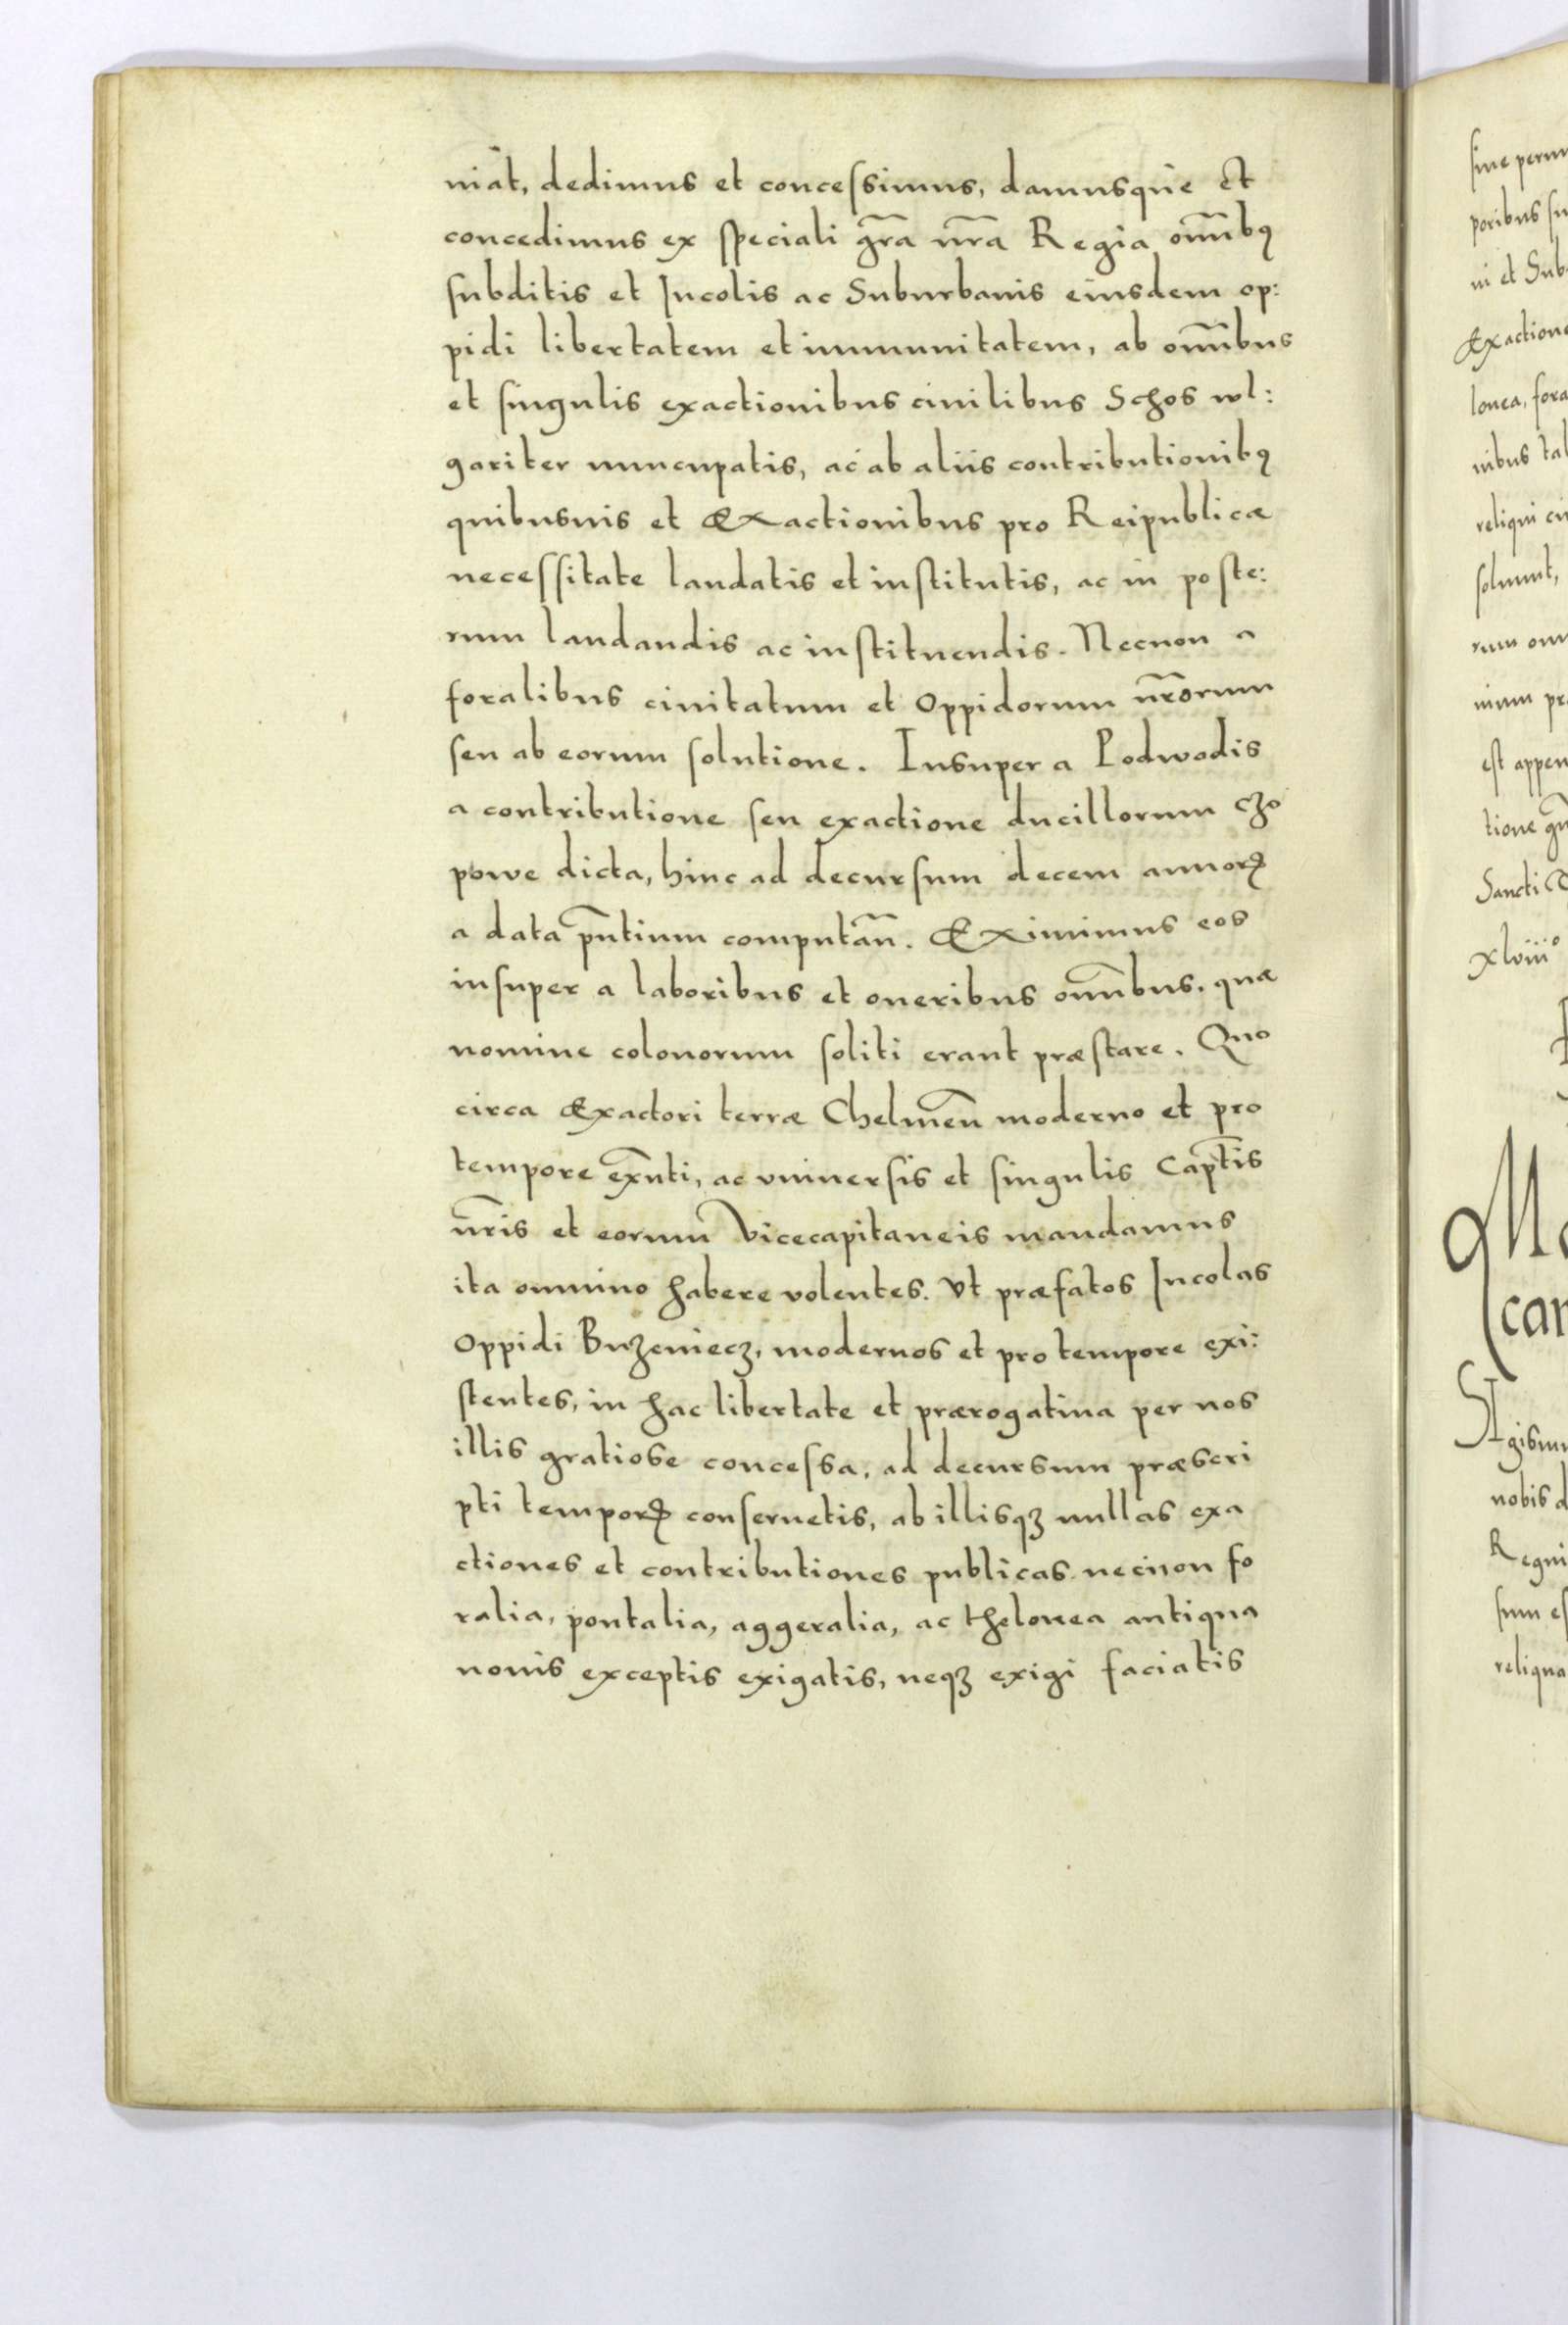 niāt, dedimus et concessimus, damusque et
concedimus ex speciali gr̄a nr̄a Regia om̄ibꝰ
subditis et Incolis ac Suburbanis eiusdem op:
pidi libertatem et immunitatem, ab om̄ibus
et singulis exactionibus ciuilibus Schos wl:
gariter nuncupatis, ac ab aliis contributionibꝰ
quibusuis et Exactionibus pro Reipublicæ
necessitate laudatis et institutis, ac in poste:
rum laudandis ac instituendis. Necnon a
foralibus ciuitatum et Oppidorum nr̄orum
seu ab eorum solutione. Insuper a Podwodis
a contributione seu exactione ducillorum czo
powe dicta, hinc ad decursum decem annoꝝ
a data pn̄tium computan̄. Eximimus eos
insuper a laboribus et oneribus om̄ibus, quæ
nomine colonorum soliti erant præstare. Quo
circa Exactori terræ Chelmen̄ moderno et pro
tempore exn̄ti, ac vniuersis et singulis Capt̄is
nr̄is et eorum Vicecapitaneis mandamus
ita omnino habere volentes. Vt præfatos Incolas
Oppidi Buzeniecz, modernos et pro tempore exi:
stentes, in hac libertate et prærogatiua per nos
illis gratiose concessa, ad decursum præscri
pti temporꝭ conseruetis, ab illisqꝫ nullas exa
ctiones et contributiones publicas necnon fo
ralia, pontalia, aggeralia, ac thelonea antiqua
nouis exceptis exigatis, neqꝫ exigi faciatis